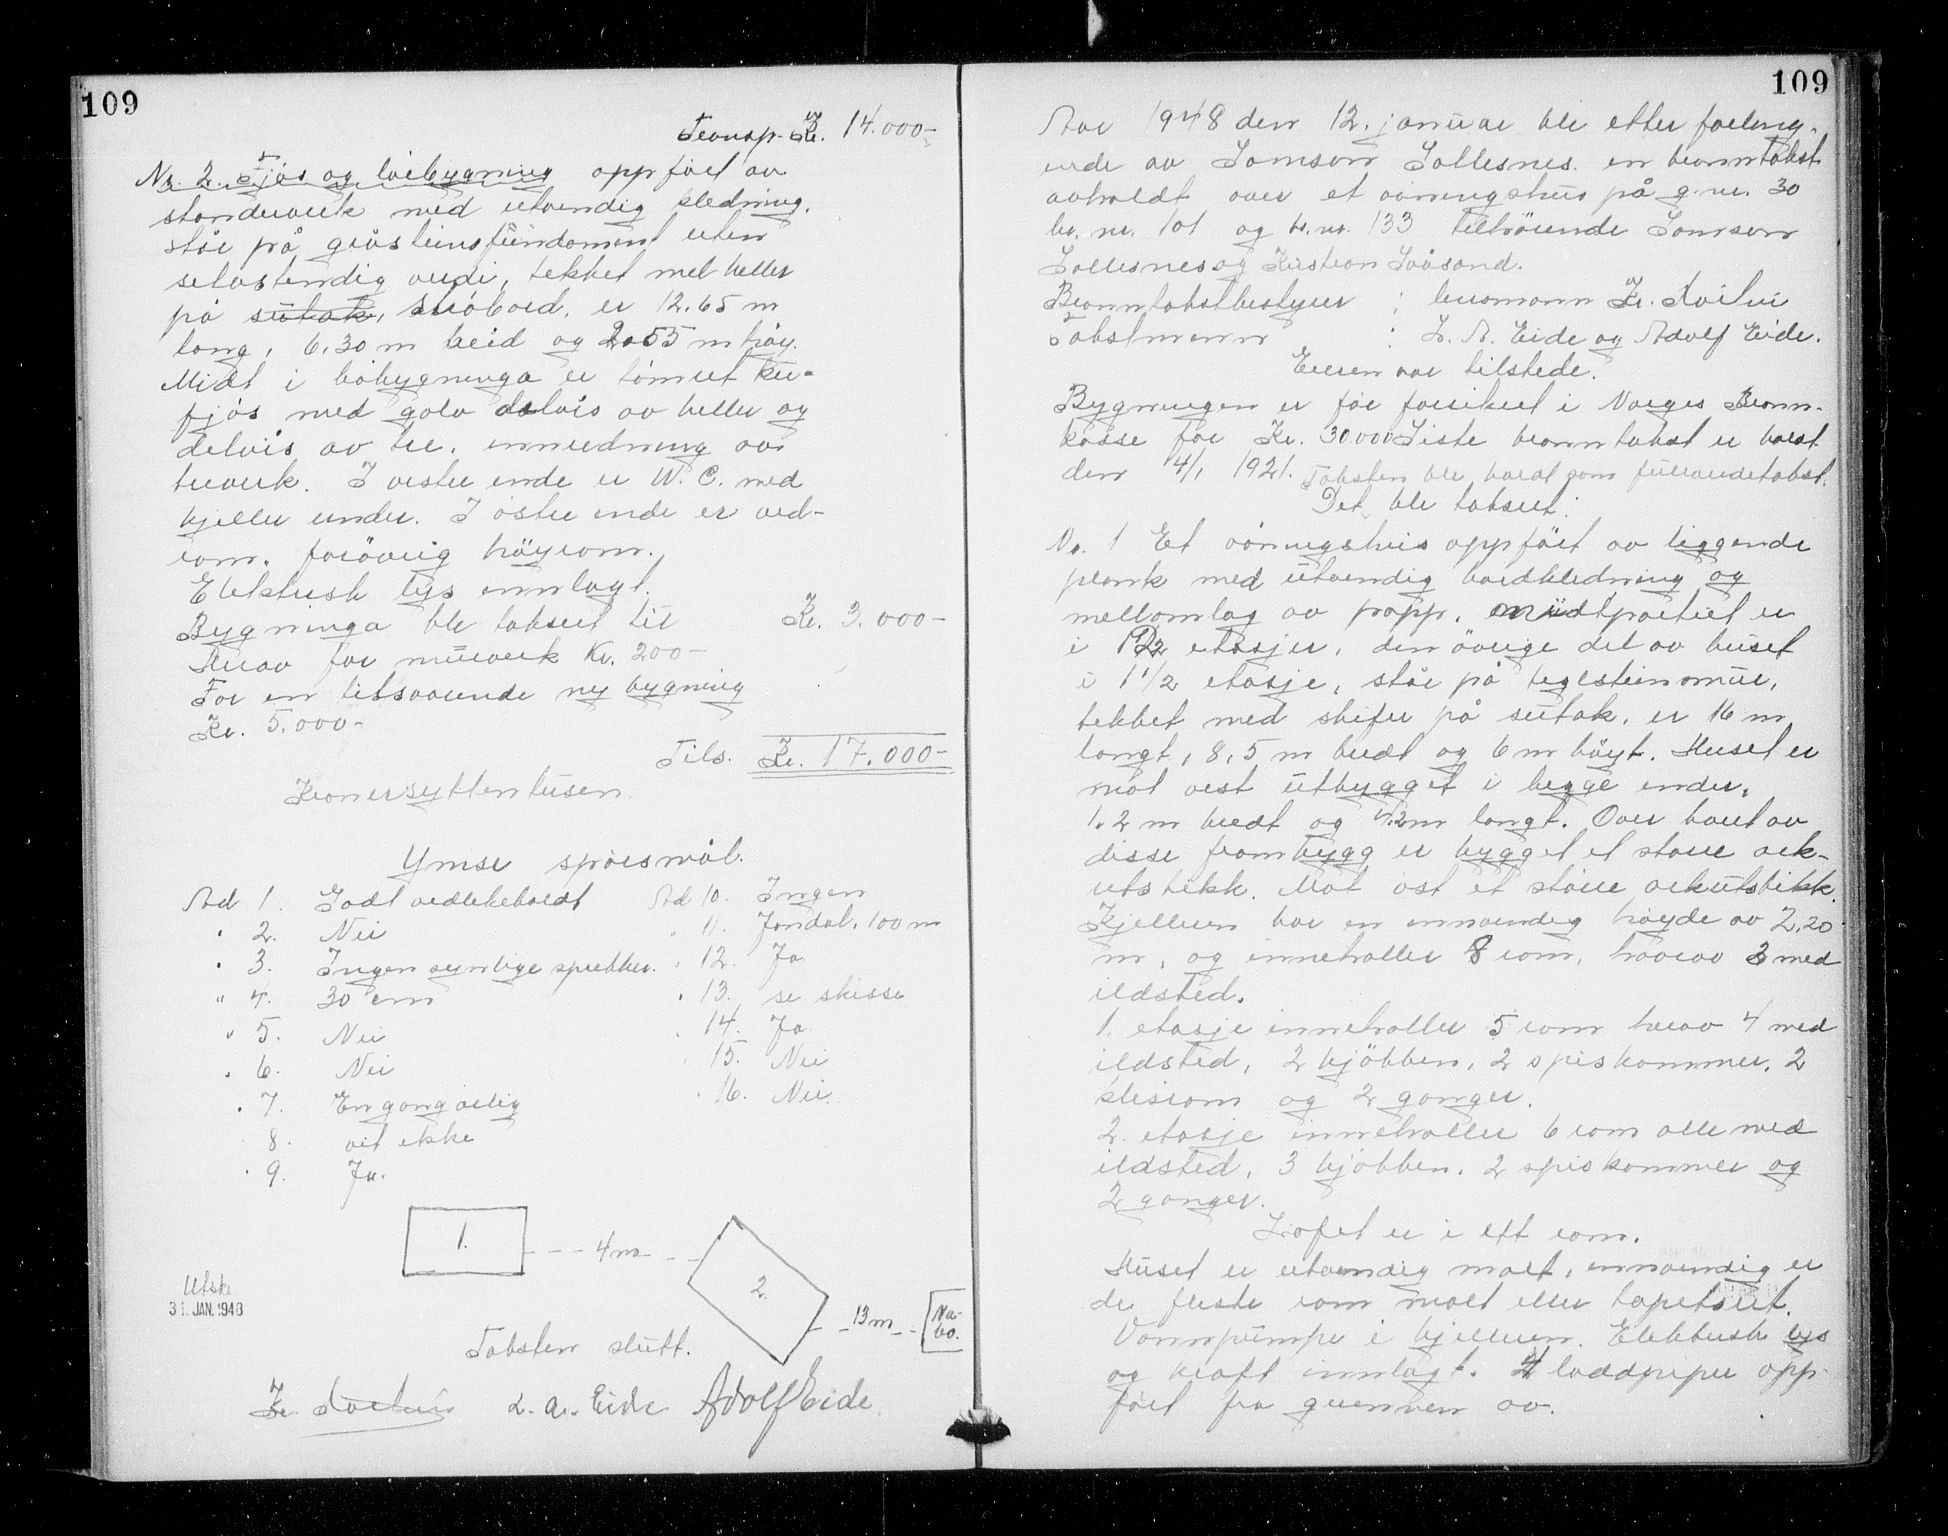 109
Transp. Kr. 14.000-
Nr. 2. Fjös og löebygning oppfört av
standverk med utvendig kledning,
står på gråsteinsfundament uten
selvstendig verdi, tekket med heller
på sutak, skråbord, er 12.65 m
lang, 6,30 m breid og 2.55 m höy.
Midt i bøbygninga er tömret ku-
fjös med golv delvis av heller og
delvis av tre, innredning av
treverk. I vestre ende er W.C. med
kjeller under. I östre ende er ved-
rom, foröverig höyrom.
Elektrisk lys innlagt.
Bygninga ble taksert til Kr. 3.000-
Herav for murverk Kr. 200-
For en tilsvarende ny bygning
Kr. 5.000-
Tils. Kr. 17.000-
Kronersyttentusen
Ymse spörsmål.
Ad 1. Godt vedlikeholdt
" 2. Nei
" 3. Ingen synlige sprekker.
" 4. 30 cm
" 5. Nei
" 6. Nei
" 7. En gang årlig
8. vet ikke
" 9. Ja.
Ad 10. Ingen
" 11. Jondal, 100 m
" 12. Ja
" 13. se skisse
" 14. Ja
" 15. Nei
" 16. Nei.
1.
4 m
2.
13 m
Na-
bo.
Utskr.
31. JAN. 1948
Taksten slutt.
Kr. L. A. Eide Adolf Eide
109
År 1948 den 12. januar ble etter forlang-
ende av Samson Sollesnes en branntakst
avholdt over et våningshus på g.nr. 30
br. nr. 101 og br. nr. 133 tilhörende Samson
Sollesnes og Kristian Svåsand.
Branntakstbestyrer : lensmann Kr.
Takstmenn : L. A. Eide og Adolf Eide.
Eieren var tilstede.
Bygningen er för forsikret i Norges Brann-
kasse for Kr. 30.000 Siste branntakst er holdt
den 4/1 1921. Taksten ble holdt som fullverditakst.
Det ble taksert:
Nr. 1 Et våningshus oppfört av liggende
plank med utvendig bordkledning og
mellomlag av papp. Midtpartiet er
i 2 etasjer, den övrige del av huset
i 1 1/2 etasje, står på teglsteinsmur,
tekket med skifer på sutak, er 16 m
langt, 8,5 m bredt og 6 m höyt. Huset er
mot vest utbygget i begge ender,
1.2 m bredt og 4.2 m langt. Over hvert av
disse frambygg er bygget et större ark-
utstikk. Mot öst et större arkutstikk.
Kjelleren har en innvendig höyde av 2,20
m, og inneholler 8 rom, hvorav 3 med
ildsted.
1. etasje inneholler 5 rom herav 4 med
ildsted, 2 kjökken, 2 spiskammer, 2
klisrom og 2 ganger.
2. etasje inneholler 6 rom alle med
ildsted, 3 kjökken, 2 spiskammer og
2 ganger.
Loftet er i ett rom.
Huset er utvendig malt, innvendig er
de fleste rom malt eller tapetsert.
Vannpumpe i kjelleren. Elektrisk lys
og kraft innlagt. 4 loddpiper opp-
fört fra grunnen av.